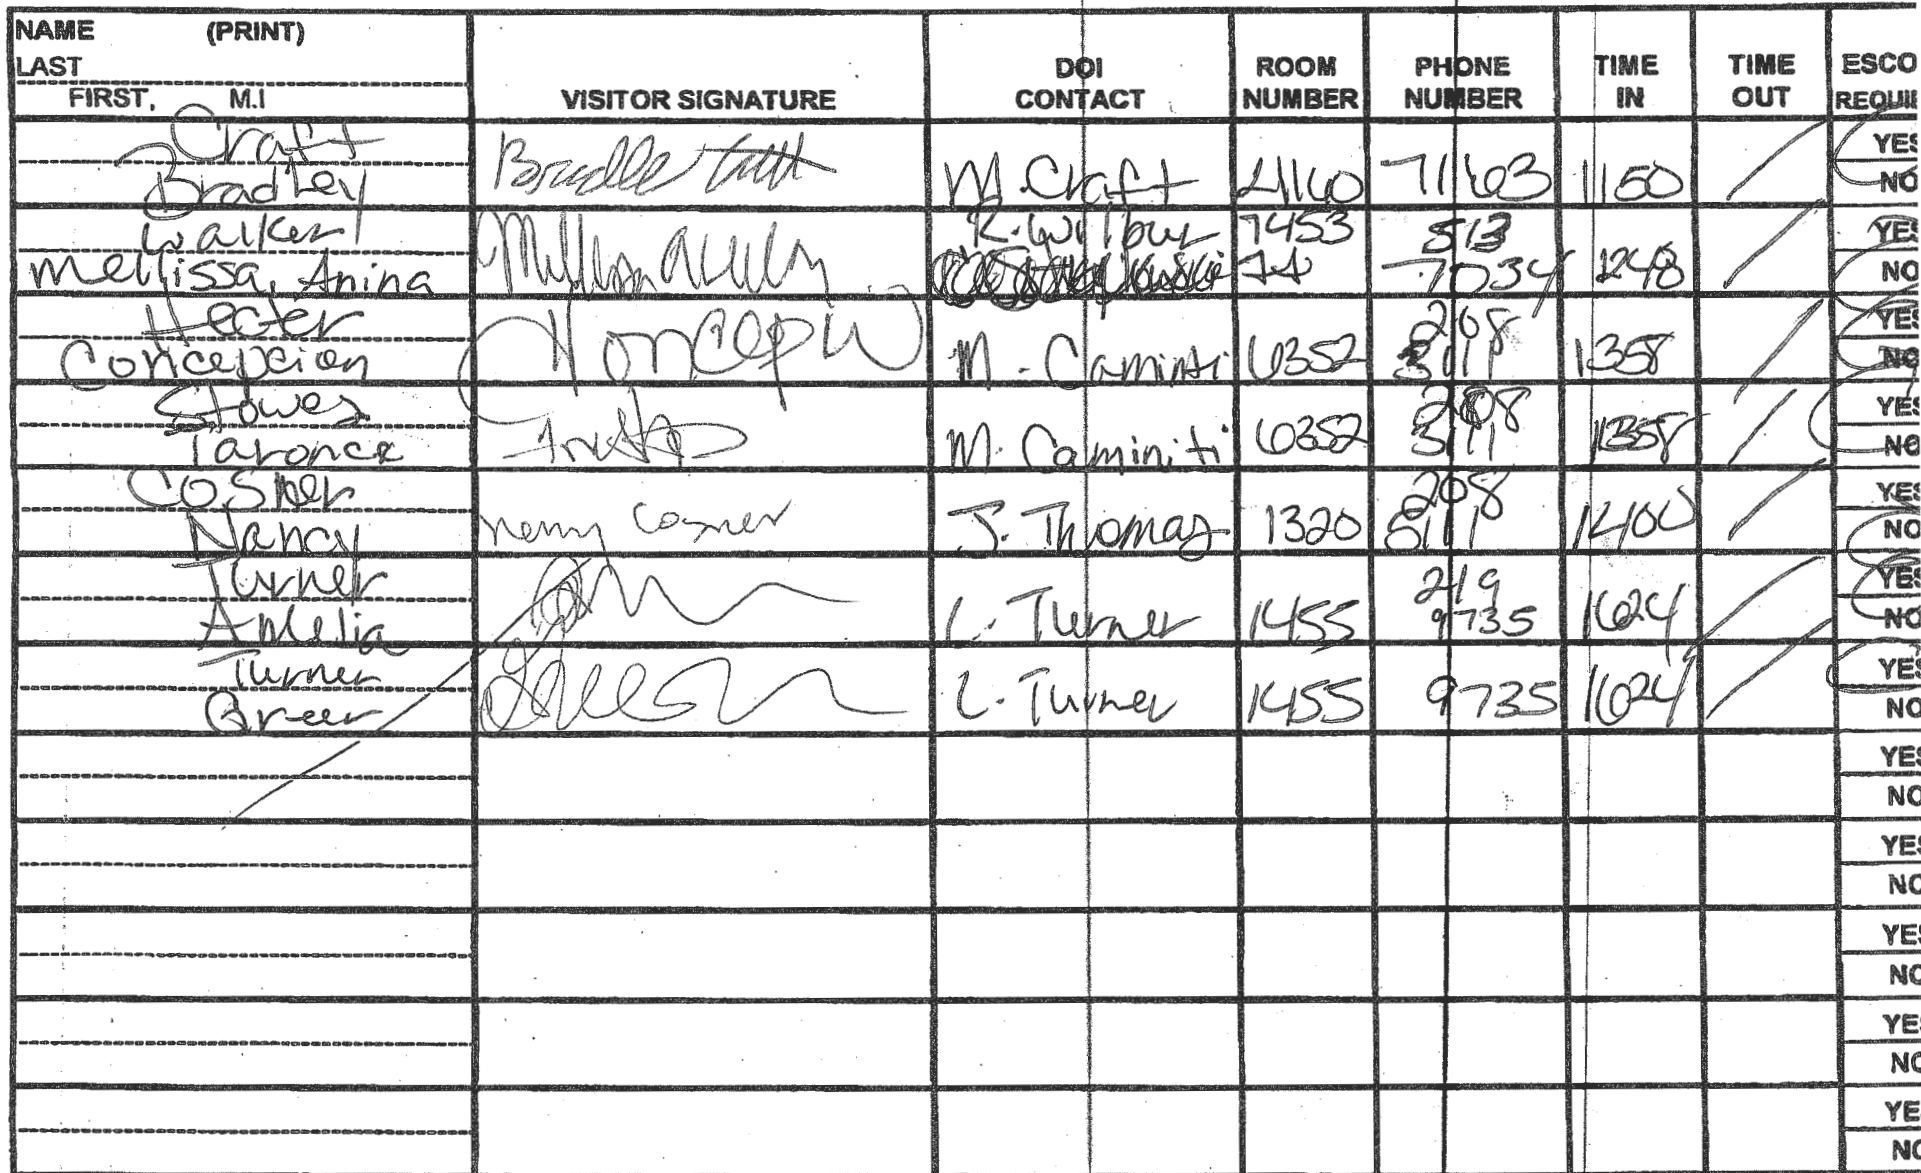 NAME (PRINT)
LAST
FIRST, M.I
VISITOR SIGNATURE
DOI CONTACT
ROOM NUMBER
PHONE NUMBER
TIME IN
TIME OUT
ESCO
REQUI
Craft
Bradley
M. Craft 4160 71163 1150
YES
NO
Walker
Mellissa, Anina
K. Wilbur 7453 513
7034 1248
YES
NO
Hecter
Concepcion
M. Caminiti 6352 208
3111 1358
YES
NO
Stowes
Taronce
M. Caminiti 6352 208
3111 1358
YES
NO
Cosner
Nancy
Nancy Cosner
J. Thomas 1320 208
5111 1400
YES
NO
Turner
Amelia
L. Turner 1455 219
9735 1624
YES
NO
Turner
Greer
L. Turner 1455 9735 1624
YES
NO
YES
NO
YES
NO
YES
NO
YES
NO
YE
NO